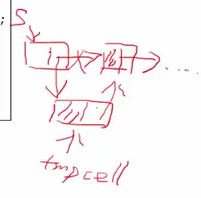 ;
S
i
....
tmpcell